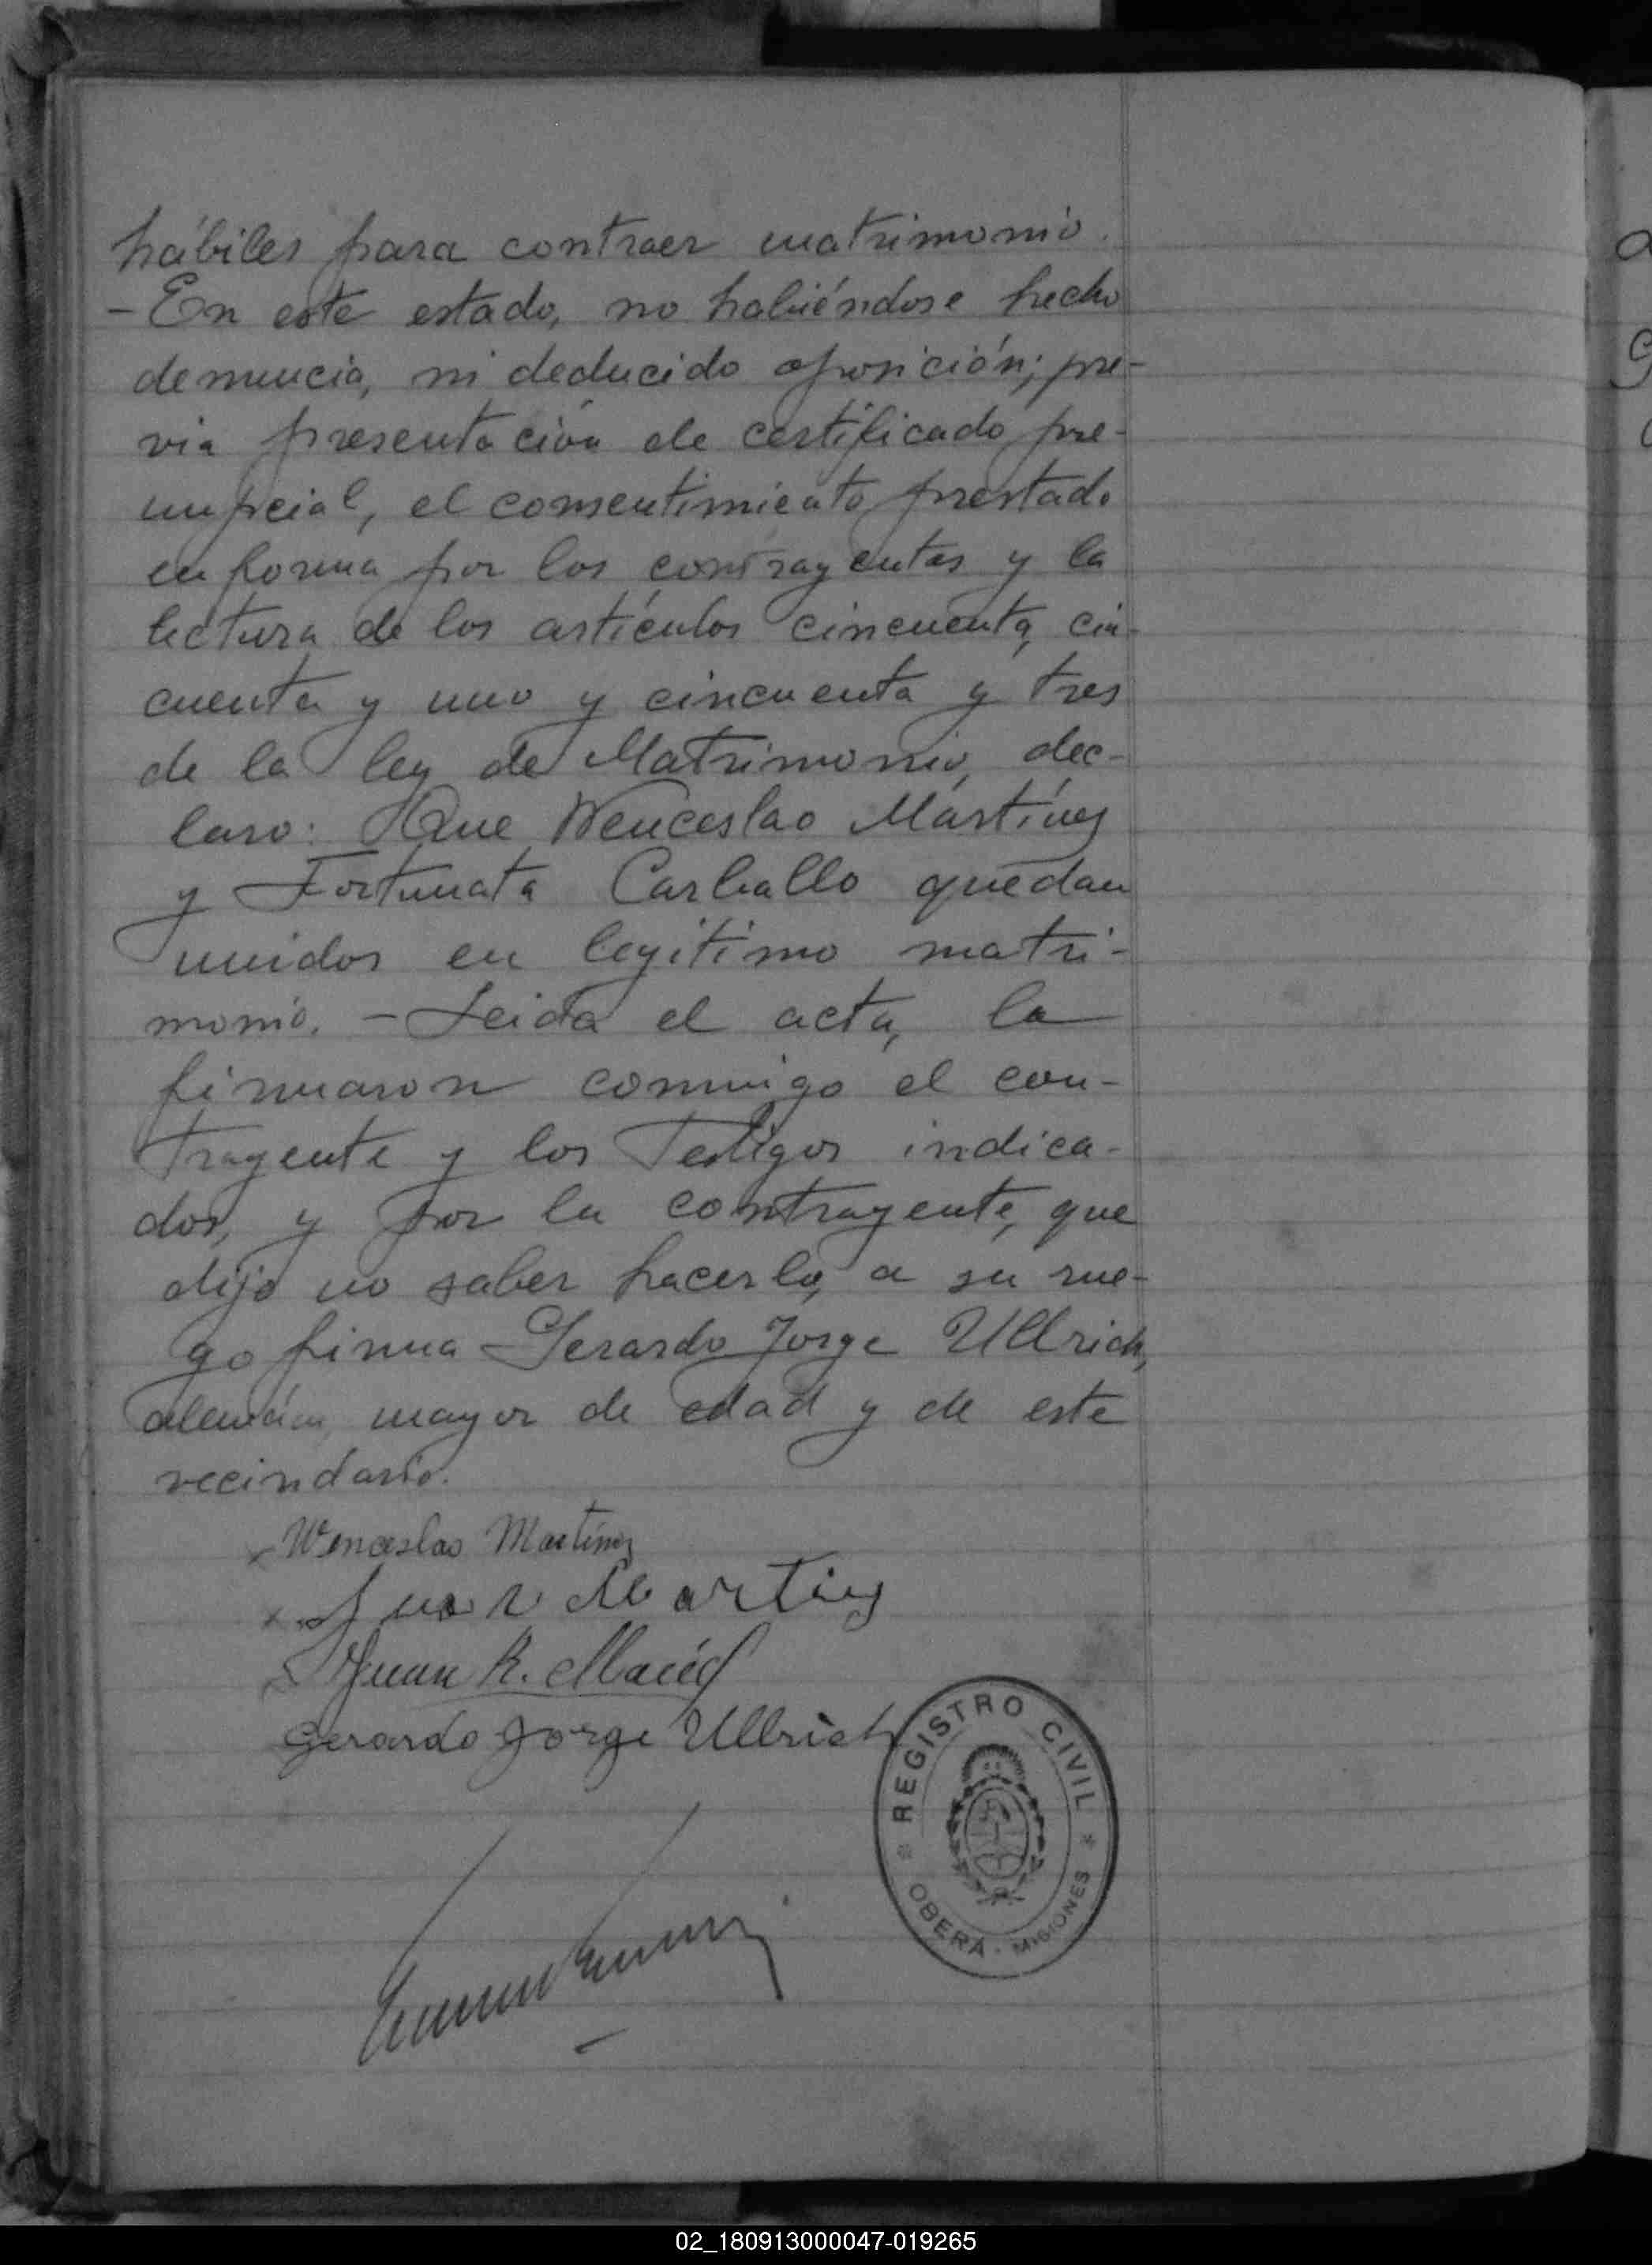 hábiles para contraer matrimonio.
- En este estado, no habiéndose hecho
denuncia, ni deducido oposición; pre-
via presentación de certificado pre-
nupcial, el consentimiento prestado
en forma por los contrayentes y la
lectura de los artículos cincuenta, cin-
cuenta y uno y cincuenta y tres
de la ley de Matrimonio, dec-
laro: Que Wenceslao Martínez
y Fortunata Carballo quedan
unidos en legítimo matri-
monio. - Leida el acta, la
firmaron conmigo el con-
trayente y los Testigos indica-
dos, y por la contrayente, que
dijo no saber hacerlo, a su rue-
go firma Gerardo Jorge Ullrich,
alemán, mayor de edad y de este
vecindario.
x Wenceslao Martínez
x Juan Martinez
x Juan R. Maciel
Gerardo Jorge Ullrich
REGISTRO CIVIL
OBERÁ - MISIONES
02_180913000047-019265